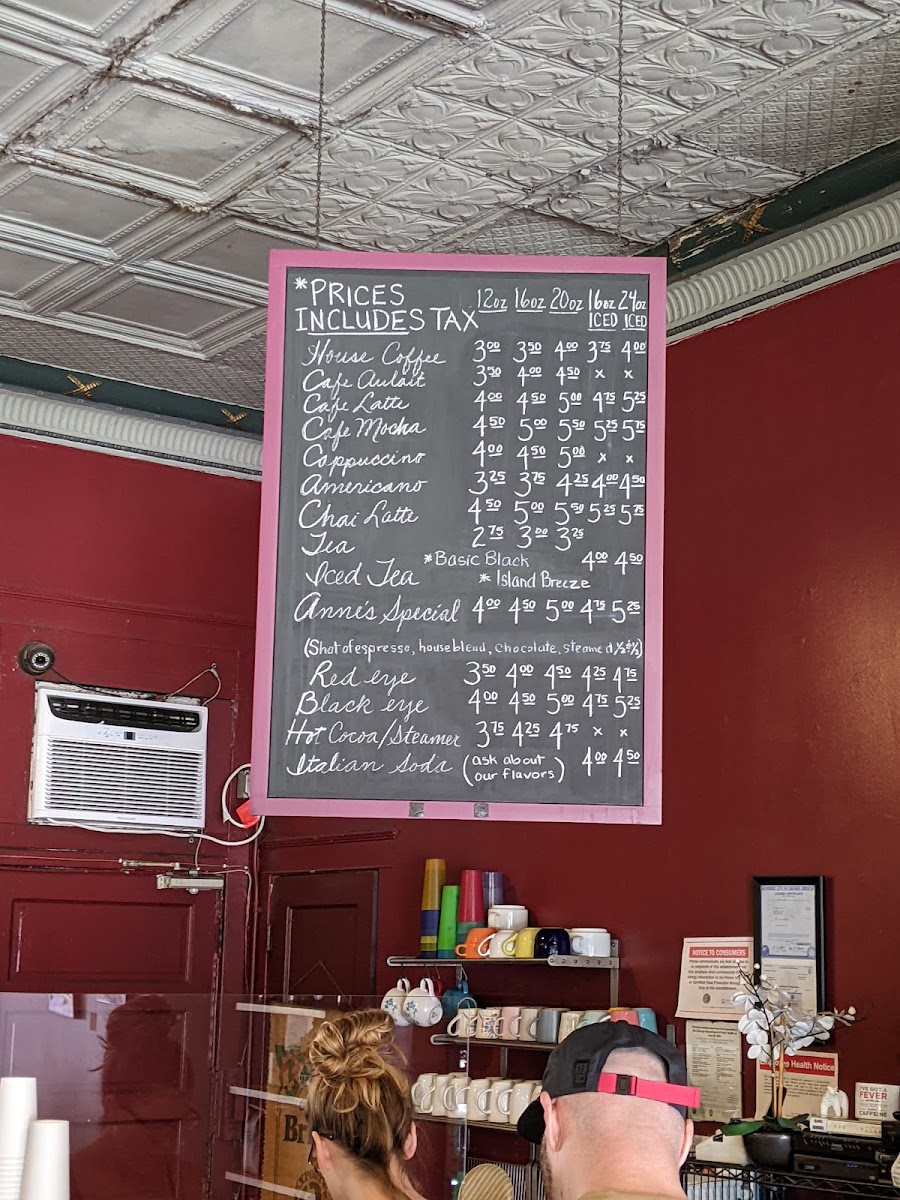 *PRICES 12oz 16oz 20oz 16oz ICED 24oz ICED
INCLUDES TAX
House Coffee 3.00 3.50 4.00 3.75 4.00
Cafe Aulait 3.50 4.00 4.50 x x
Cafe Latte 4.00 4.50 5.00 4.75 5.25
Cafe Mocha 4.50 5.00 5.50 5.25 5.75
Cappuccino 4.00 4.50 5.00 x x
Americano 3.25 3.75 4.25 4.00 4.50
Chai Latte 4.50 5.00 5.50 5.25 5.75
Tea 2.75 3.00 3.25
Iced Tea *Basic Black 4.00 4.50
* Island Breeze
Anne's Special 4.00 4.50 5.00 4.75 5.25
(Shot of espresso, house blend, chocolate, steamed 1/2 & 1/2)
Red eye 3.50 4.00 4.50 4.25 4.75
Black eye 4.00 4.50 5.00 4.75 5.25
Hot Cocoa/Steamer 3.75 4.25 4.75 x x
Italian Soda (ask about our flavors) 4.00 4.50
NOTICE TO CONSUMERS
Health Notice
I'VE GOT A
FEVER
CAFFEINE